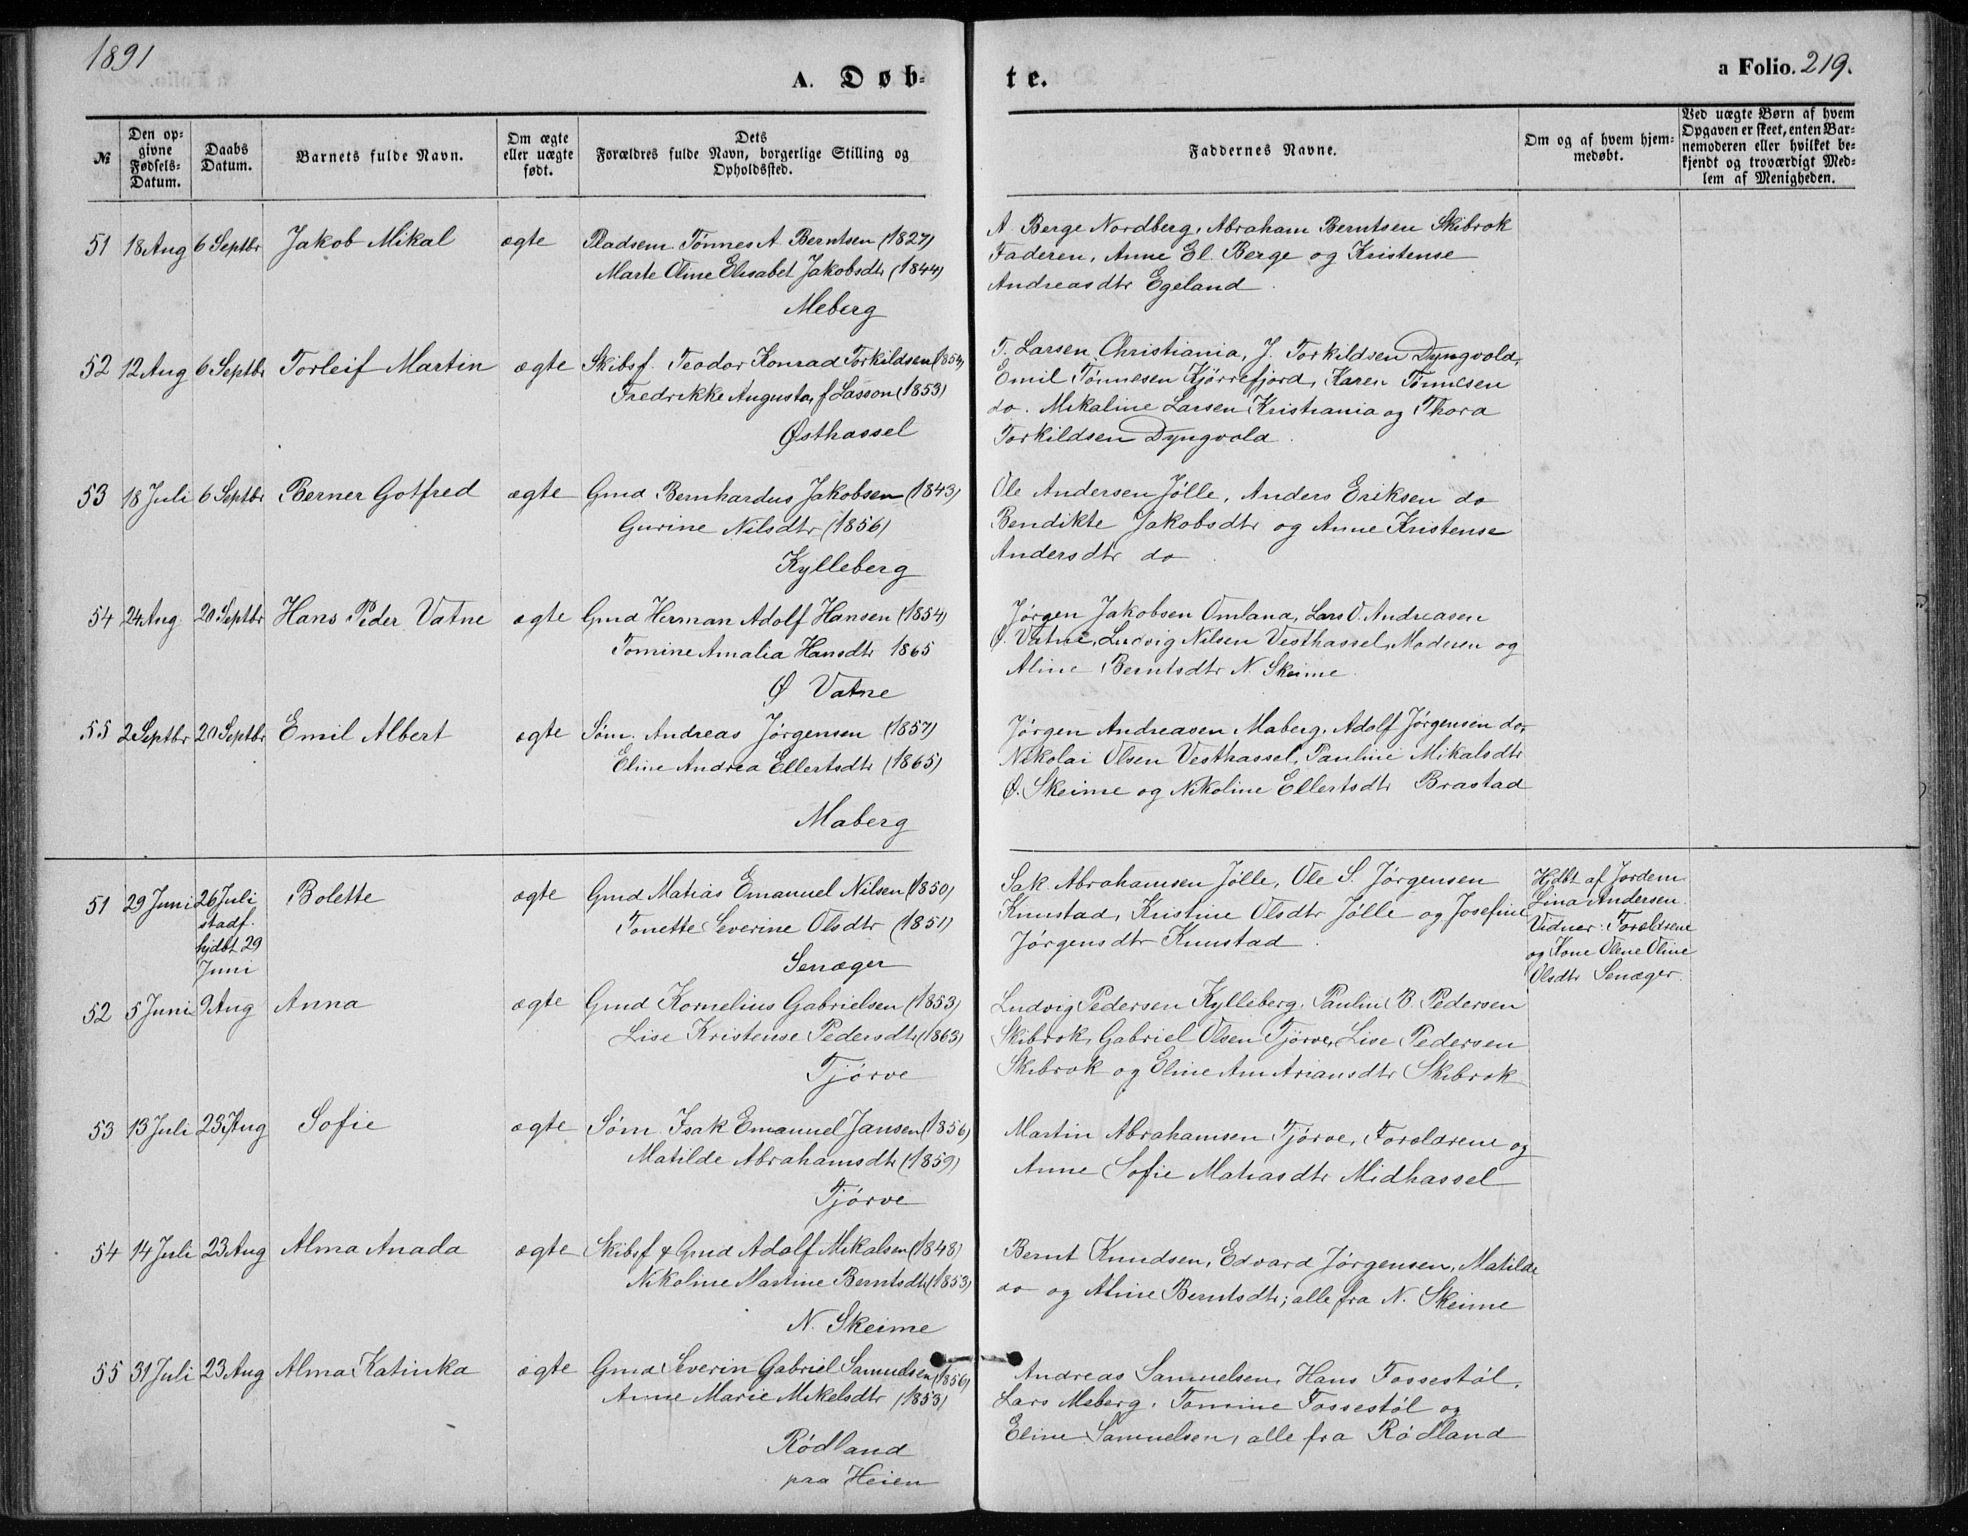 1891
A. Døb-
te.
a Folio. 219.
№
Den op-
givne
Fødsels-
Datum.
Daabs
Datum.
Barnets fulde Navn.
Om ægte
eller uægte
født.
Dets
Forældres fulde Navn, borgerlige Stilling og
Opholdssted.
Faddernes Navne.
Om og af hvem hjem-
medøbt.
Ved uægte Børn af hvem
Opgaven er skeet, enten Bar-
nemoderen eller hvilket be-
kjendt og troværdigt Med-
lem af Menigheden.
51 18 Aug 6 Septbr Jakob Mikal ægte Pladsem. Tønnes A. Berntsen (1827)
Marte Oline Elisabet Jakobsdtr (1844)
Meberg
A. Berge Nordberg, Abraham Berntsen Skibrok
Faderen, Anne El. Berge og Kristense
Andreasdtr Egeland.
52 12 Aug 6 Septbr Torleif Martin ægte Skibsf. Teodor Konrad Torkildsen (1854)
Fredrikke Augusta, f Lasson (1853)
Østhassel
T. Larsen Christiania, J. Torkildsen Dyngvold,
Emil Tønnesen Kjørrefjord, Karen Tønnesen
do. Mikaline Larsen Kristiania og Thora
Torkildsen Dyngvold.
53 18 Juli 6 Septbr Berner Gotfred ægte Gmd Bernhardus Jakobsen (1843)
Gurine Nilsdtr (1856)
Kylleberg
Ole Andersen Jølle, Anders Eriksen do
Bendikte Jakobsdtr og Anne Kristense
Andersdtr do.
54 24 Aug 20 Septbr Hans Peder Vatne ægte Gmd Herman Adolf Hansen (1854)
Tomine Amalia Hansdtr 1865
Ø Vatne
Jørgen Jakobsen Omland, Lars O. Andreasen
Ø. Vatne, Ludvig Nilsen Vesthassel, Moderen og
Aline Berntsdtr N. Skeime.
55 2 Septbr 20 Septbr Emil Albert ægte Søm. Andreas Jørgensen (1857)
Eline Andrea Ellertsdtr (1865)
Maberg
Jørgen Andreasen Maberg, Adolf Jørgensen do,
Nikolai Olsen Vesthassel, Pauline Mikalsdtr
Ø. Skeime og Nikoline Ellertsdtr Brastad
51 29 Juni 26 Juli Bolette ægte Gmd Matias Emanuel Nilsen (1850)
stadf.
hjdbt 29
Juni
Tonette Severine Olsdtr (1851)
Senæger
Sak Abrahamsen Jølle, Ole S. Jørgensen
Knustad, Kristine Olsdtr Jølle og Josefine
Jørgensdtr Knustad.
Hjdbt af Jordem.
Lina Andersen.
Vidner: Forældrene
og Kone Olene Oline
Olsdtr Senæger.
52 5 Juni 9 Aug Anna ægte Gmd Kornelius Gabrielsen (1853)
Lise Kristense Pedersdtr (1863)
Tjørve
Ludvig Pedersen Kylleberg, Paulin B. Pedersen
Skibrok, Gabriel Olsen Tjørve, Lise Pedersen
Skibrok og Eline Ann Ariansdtr Skibrok.
53 13 Juli 23 Aug Sofie ægte Søm. Isak Emanuel Jansen (1856)
Matilde Abrahamsdtr (1859)
Tjørve
Martin Abrahamsen Tjørve, Forældrene og
Anne Sofie Matiasdtr Midhassel
54 14 Juli 23 Aug Alma Anada ægte Skibsf & Gmd Adolf Mikalsen (1848)
Nikoline Martine Berntsdtr (1853)
N. Skeime
Bernt Knudsen, Edvard Jørgensen, Matilde
do og Aline Berntsdtr; alle fra N. Skeime
55 31 Juli 23 Aug Alma Katinka ægte Gmd Severin Gabriel Samuelsen (1856)
Anne Marie Mikelsdtr (1853)
Rødland
paa Heien
Andreas Samuelsen, Hans Fossestøl,
Lars Meberg, Tomine Fossestøl og
Eline Samuelsen, alle fra Rødland